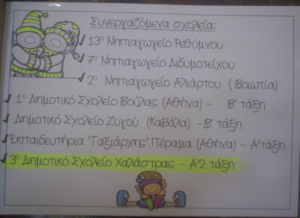 Συνεργαζόμενα σχολεία:
13ο Νηπιαγωγείο Ρεθύμνου
7ο Νηπιαγωγείο Διδυμοτείχου
2ο Νηπιαγωγείο Αλιάρτου (Βοιωτία)
1ο Δημοτικό Σχολείο Βούλας (Αθήνα) - Β' τάξη
Δημοτικό Σχολείο Ζυγού (Καβάλα) - Β' τάξη
Εκπαιδευτήρια "Ταξιάρχης" Πέραμα (Αθήνα) - Α' τάξη
3ο Δημοτικό Σχολείο Χαλάστρας - Α'2 τάξη